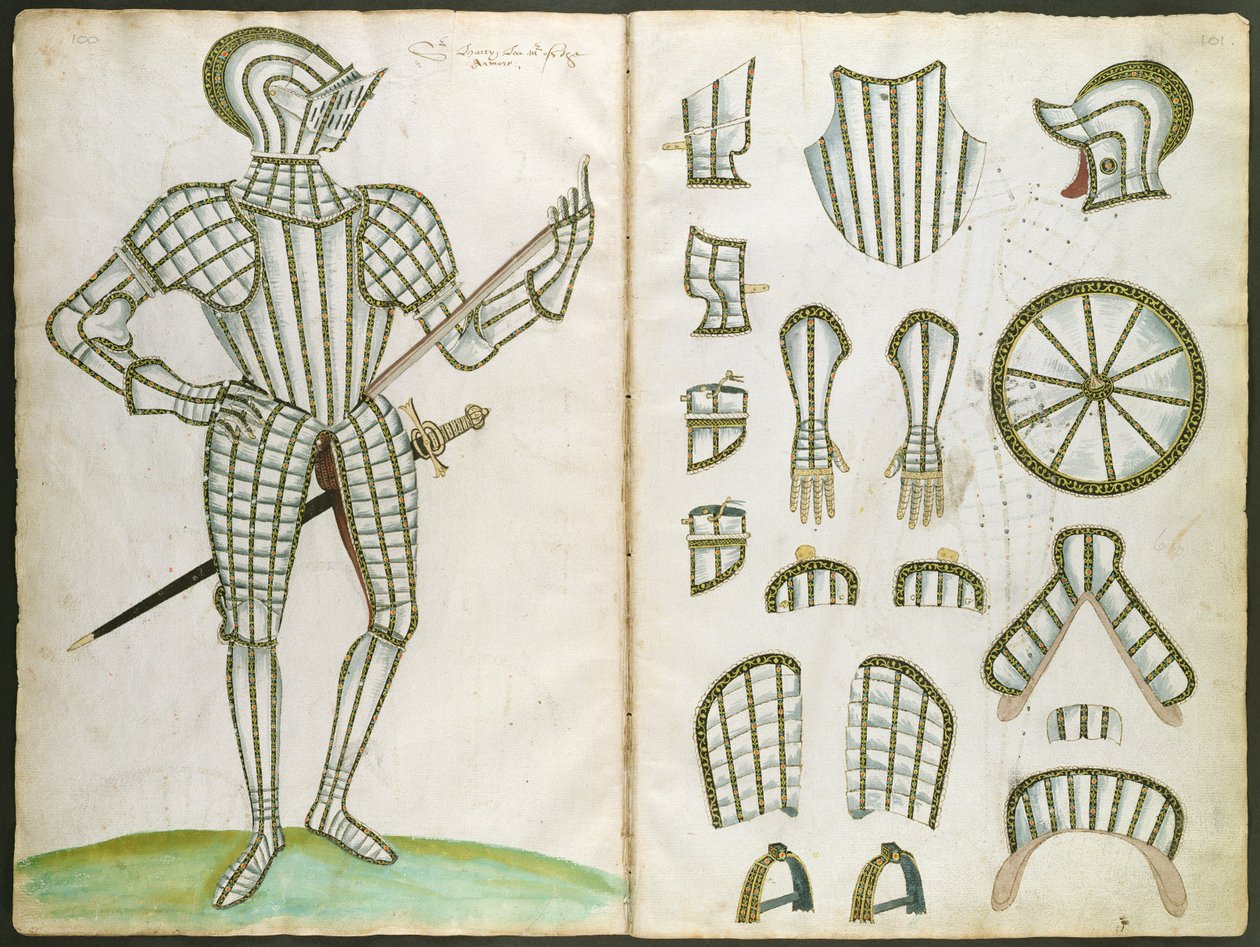 100
Sr Harry Lea mr of the
Armore,
101